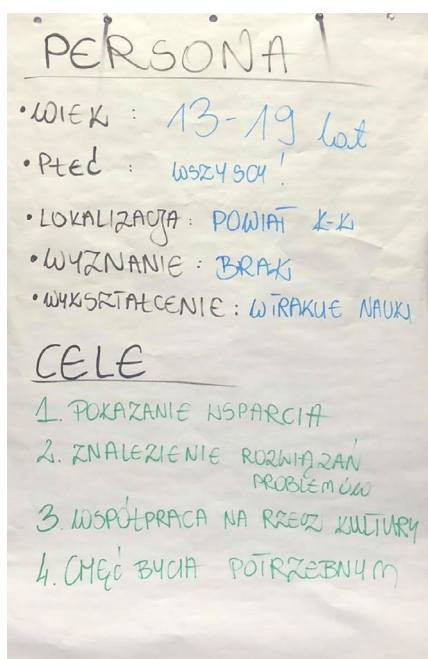 PERSONA
• WIEK : 13-19 lat
• PŁEĆ : WSZYSCY!
• LOKALIZACJA : POWIAT K-K
• WYZNANIE : BRAK
• WYKSZTAŁCENIE : W TRAKCIE NAUKI
CELE
1. POKAZANIE WSPARCIA
2. ZNALEZIENIE ROZWIĄZAŃ
PROBLEMÓW
3. WSPÓŁPRACA NA RZECZ KULTURY
4. CHĘĆ BYCIA POTRZEBNYM